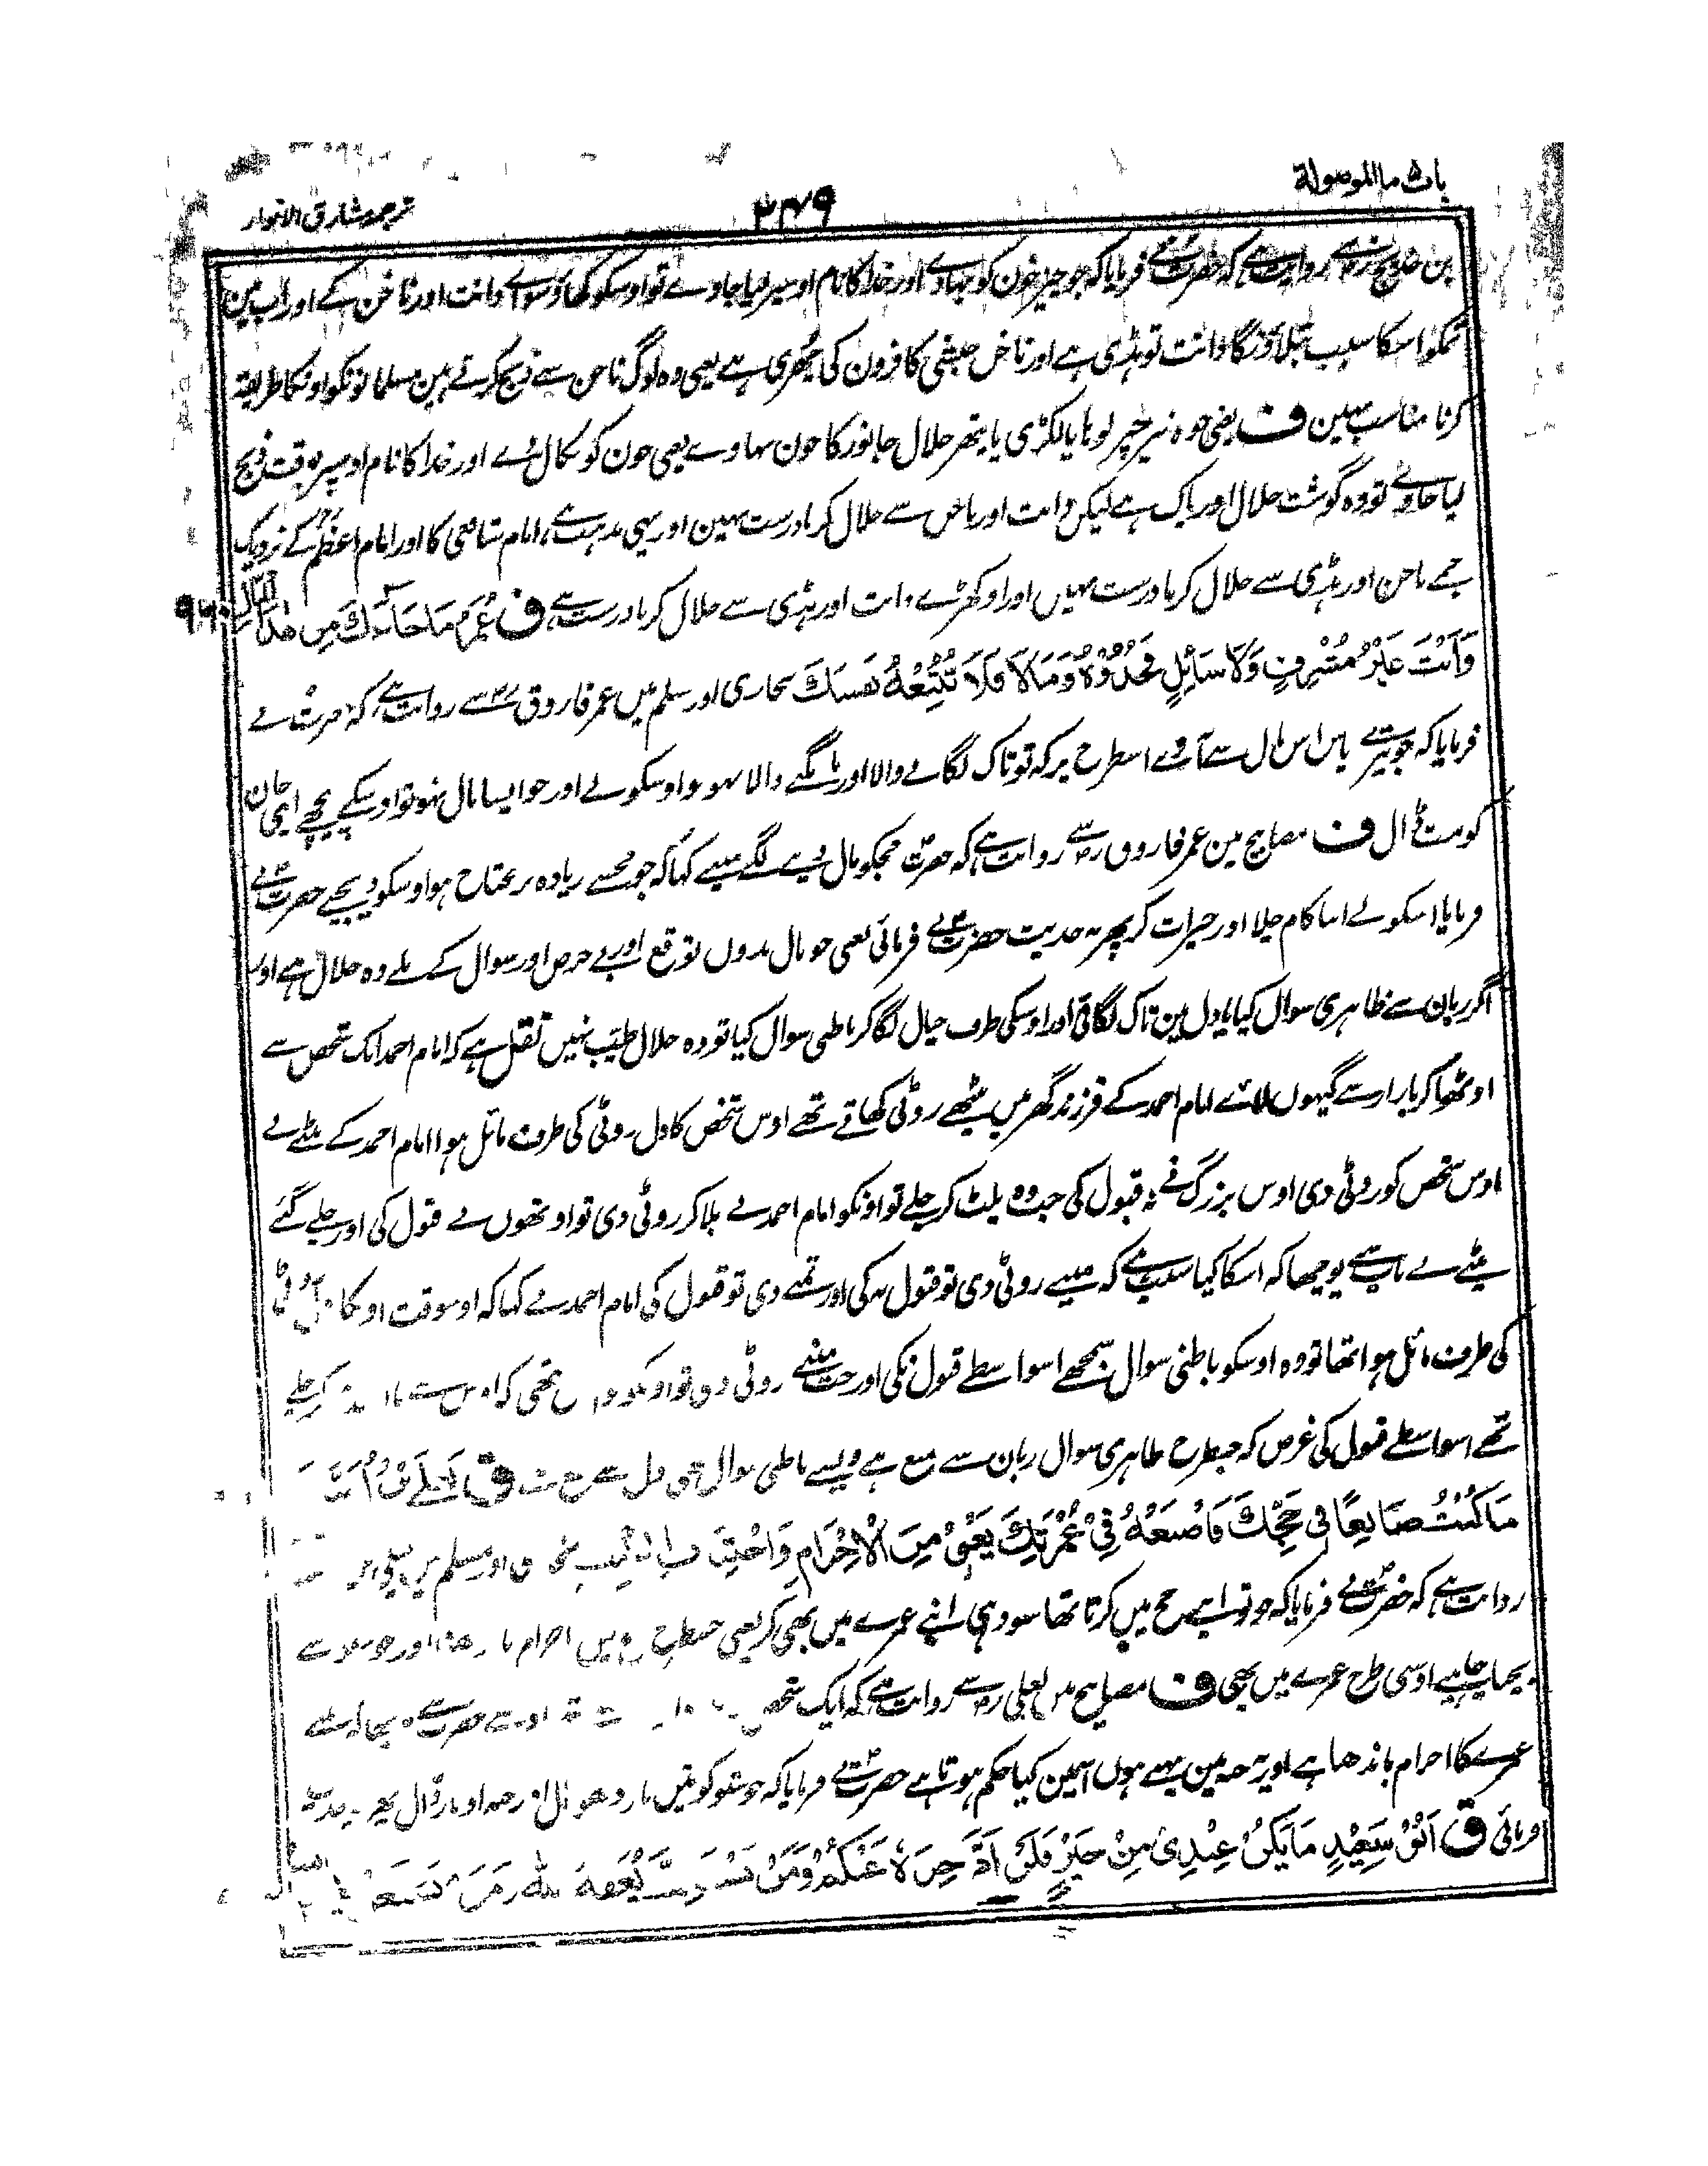 باب ما الموصولة
۳۴۹
ترجمہ مشارق الانوار
بن خدیج رضسے روایت ہے کہ حضرت نے فرمایا کہ جو چیز خون کو بہاوے اور خدا کا نام اوسپر لیا جاوے تو اوسکو کھاؤ سواے دانت اور ناخن کے اور اب مین
تمکو اسکا سبب بتلاؤنگا دانت تو ہڈی ہے اور ناخن حبشی کافرون کی چھری ہے یعنی وہ لوگ ناخن سے ذبح کرتے ہین مسلمانونکو اونکا طریقہ
کرنا مناسب نہین ف یعنی جو تیز چیز لوہا یا لکڑی یا پتھر حلال جانور کا خون بہاوے یعنی خون کو نکال دے اور خدا کا نام اوسپر وقت ذبح
لیا جاوے تو وہ گوشت حلال اور پاک ہے لیکن دانت اور ناخن سے حلال کرنا درست نہین اور یہی مذہب ہے امام شافعی کا اور امام اعظم کے نزدیک
جمے ناخن اور ہڈی سے حلال کرنا درست نہیں اور اوکھڑے دانت اور ہڈی سے حلال کرنا درست ہے ق عُمَرُ مَا جَاءَكَ مِنْ هٰذَا الْمَالِ
۹۶۰
وَاَنْتَ غَيْرُ مُشْرِفٍ وَلَا سَائِلٍ فَخُذْهُ وَمَا لَا فَلَا تُتْبِعْهُ نَفْسَكَ بخاری اور مسلم میں عمر فاروق رضسے روایت ہے کہ حضرت نے
فرمایا کہ جو تیرے پاس اس مال سے آوے اسطرح پر کہ تو تاک لگانے والا اور مانگنے والا نہو تو اوسکو لے اور جو ایسا مال نہو تو اوسکے پیچھے اپنی جان
کو مت ڈال ف مصابیح مین عمر فاروق رضسے روایت ہے کہ حضرت مجکو مال دینے لگے مینے کہا کہ جو مجھسے زیادہ تر محتاج ہو اوسکو دیجیے حضرت نے
فرمایا اسکو لے اپنا کام چلا اور خیرات کر پھر یہ حدیث حضرت نے فرمائی یعنی جو مال بدون توقع اور بے حرص اور سوال کے ملے وہ حلال ہے اور
اگر زبان سے ظاہری سوال کیا یا دل مین تاک لگائی اور اوسکی طرف خیال لگا کر باطنی سوال کیا تو وہ حلال طیّب نہیں نقل ہے کہ امام احمد ایک شخص سے
اوٹھوا کر بازار سے گیہوں لائے امام احمد کے فرزند گھر میں بیٹھے روٹی کھاتے تھے اوس شخص کا دل روٹی کی طرف مائل ہوا امام احمد کے بیٹے نے
اوس شخص کو روٹی دی اوس بزرگ نے نہ قبول کی جب وہ پلٹ کر چلے تو اونکو امام احمد نے بلا کر روٹی دی تو اونھوں نے قبول کی اور چلے گئے
بیٹے نے باپ سے پوچھا کہ اسکا کیا سبب ہے کہ مینے روٹی دی تو قبول نہ کی اور تمنے دی تو قبول کی امام احمد نے کہا کہ اوسوقت اونکا دل روٹی
کی طرف مائل ہوا تھا تو وہ اوسکو باطنی سوال سمجھے اسواسطے قبول نکی اور جب مینے روٹی دی تو اونکو تھی کہ چلے
تھے اسواسطے قبول کی غرض کہ جسطرح ظاہری سوال زبان سے منع ہے ویسے باطنی سوال بھی دل سے منع ہے ق
مَا كُنْتَ صَانِعًا فِي حَجِّكَ فَاصْنَعْهُ فِي عُمْرَتِكَ يَعْنِي مِنَ الْاِحْرَامِ وَاجْتِنَابِ الطِّيْبِ بخاری اور مسلم میں
روایت ہے کہ حضرت نے فرمایا کہ جو تو اپنے حج میں کرتا تھا سو وہی اپنے عمرے میں بھی کر یعنی جسطرح حج میں احرام باندھنا اور خوشبو سے
بچنا چاہیے اوسی طرح عمرے میں بھی ف مصابیح میں یعلی رضسے روایت ہے کہ ایک شخص حضرت سے
عمرے کا احرام باندھا ہے اور یہ جبہ مین پہنے ہوں اسمین کیا حکم ہوتا ہے حضرت نے فرمایا کہ خوشبو کو تین بار دھو ڈال اور جبہ اوتار ڈال پھر یہ حدیث
فرمائی ق اَبُوْ سَعِيْدٍ مَا يَكُنْ عِنْدِيْ مِنْ خَيْرٍ فَلَنْ اَدَّخِرَهُ عَنْكُمْ وَمَنْ يَسْتَعْفِفْ يُعِفَّهُ اللّٰهُ وَمَنْ